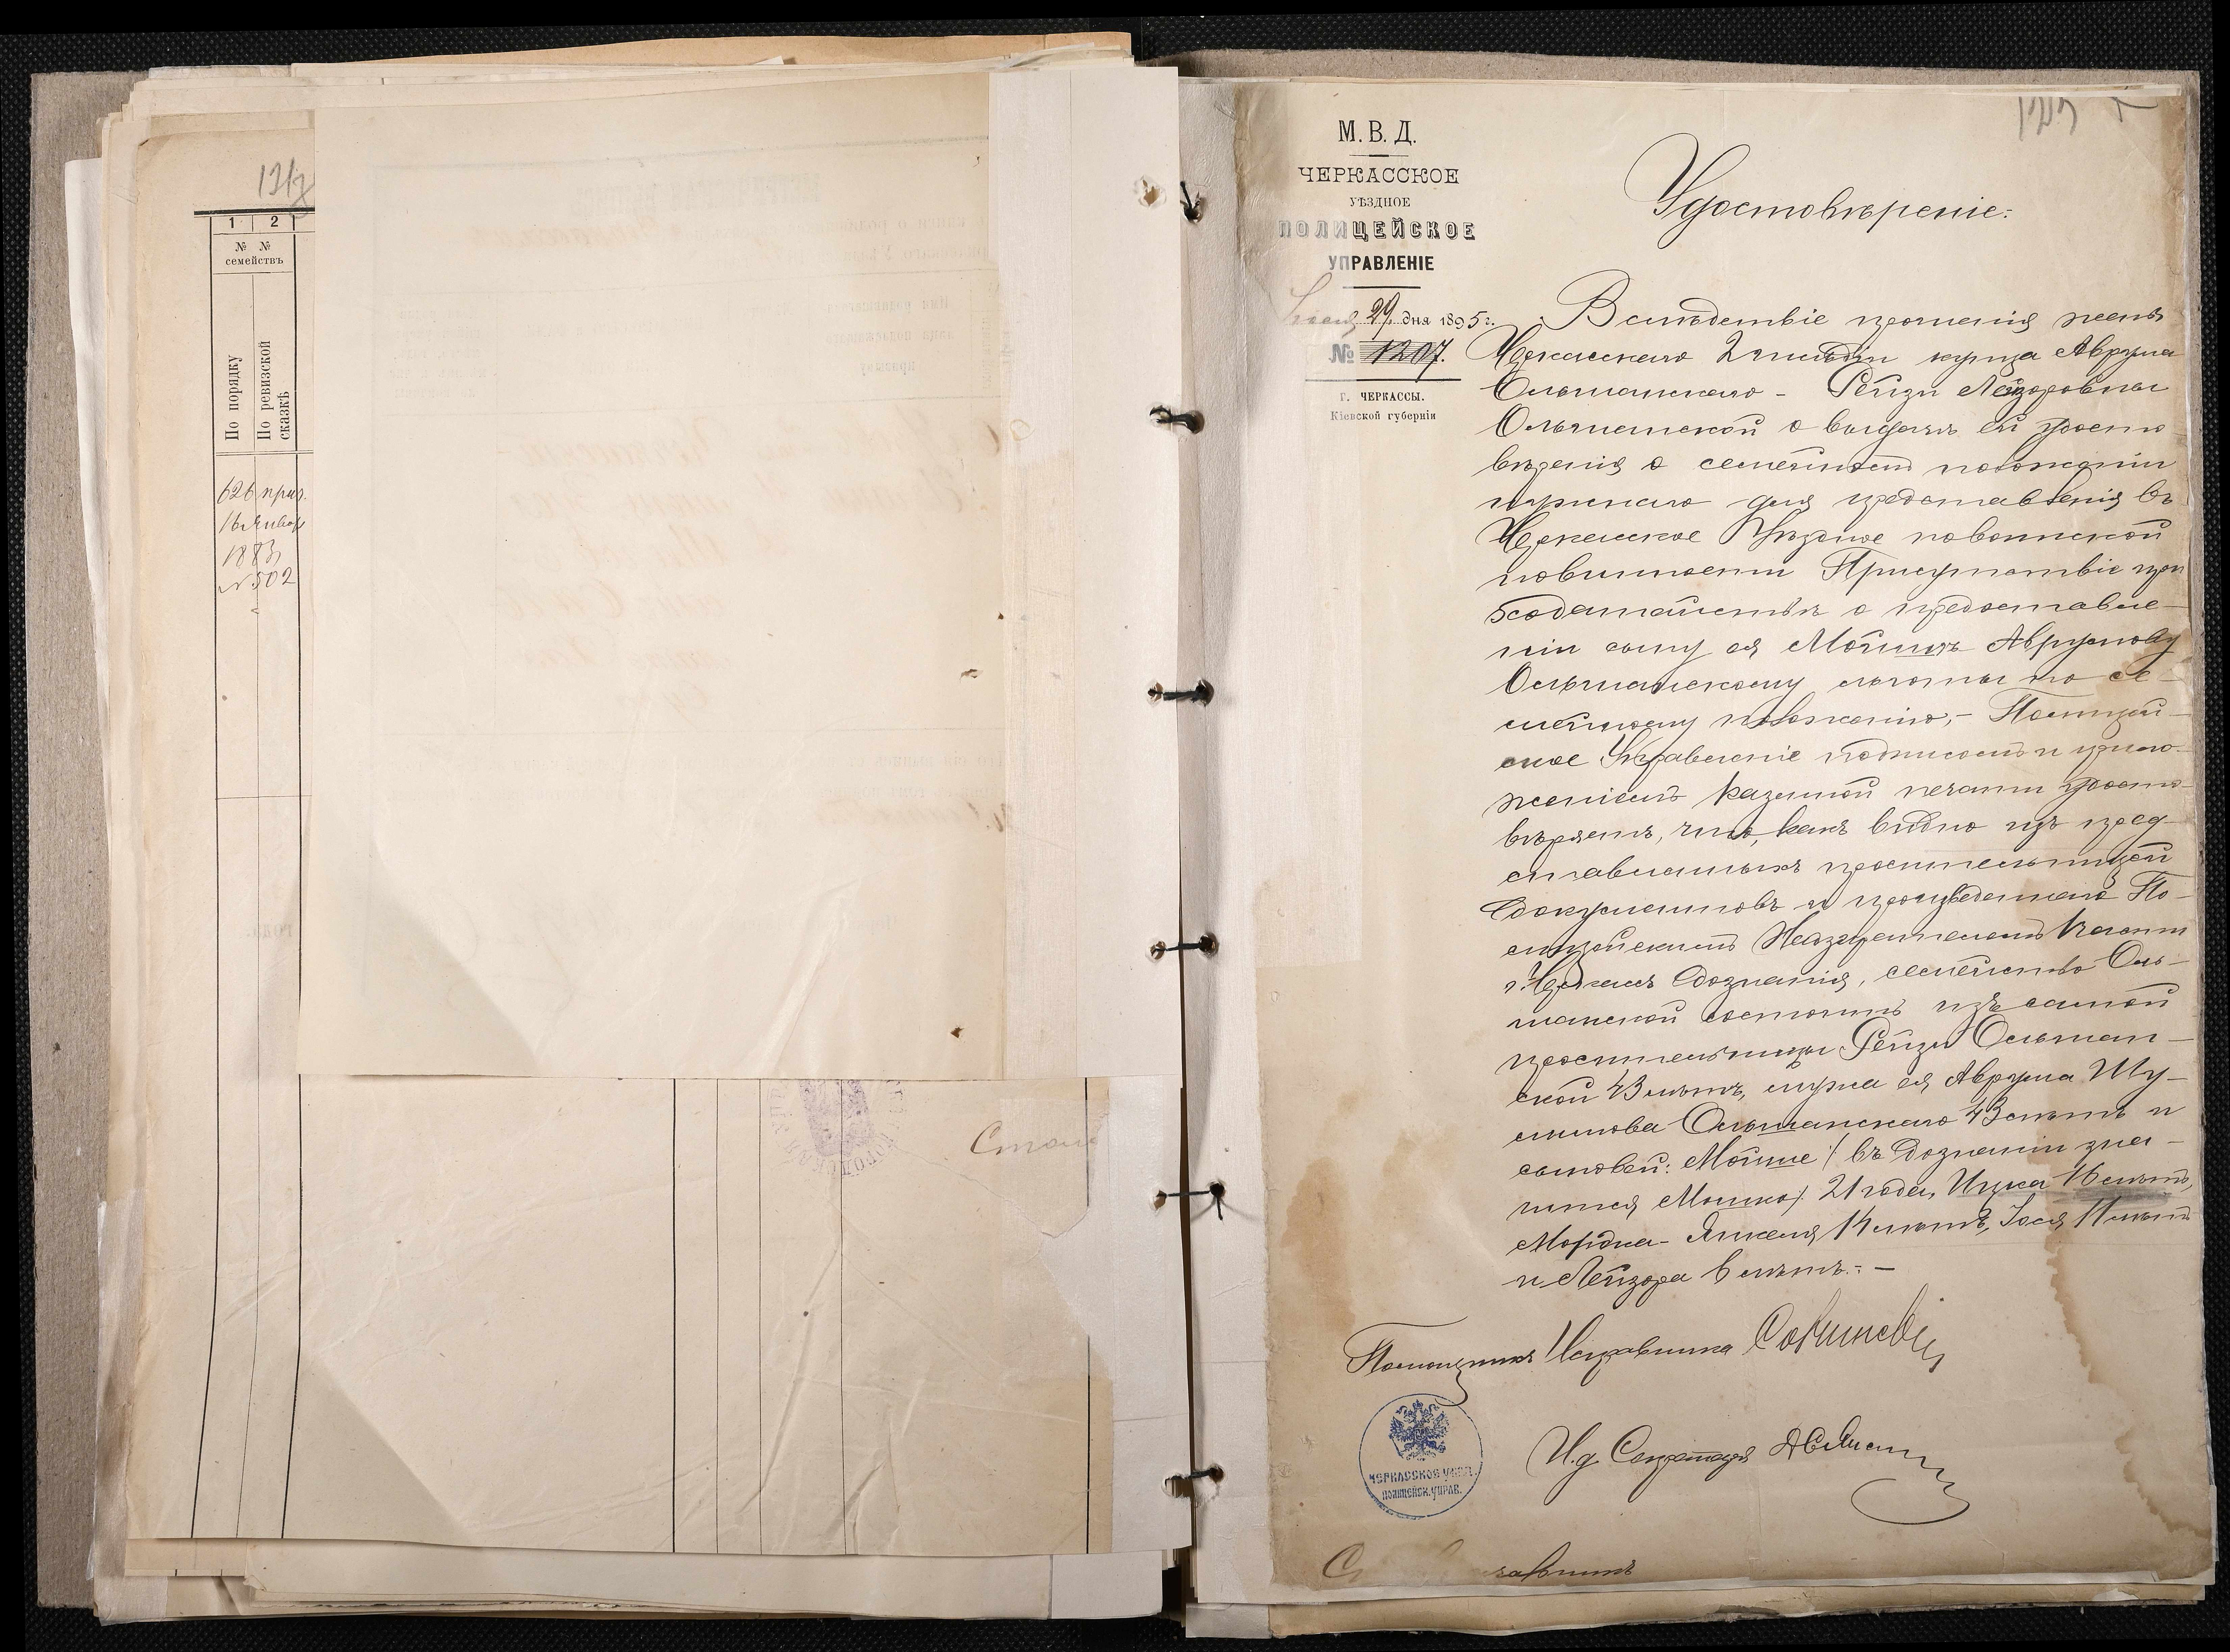 1
2
№ №
семействъ
По порядку
По ревизской
сказкѣ
626
1883
№ 502
М. В. Д.
ЧЕРКАССКОЕ
УѢЗДНОЕ
ПОЛИЦЕЙСКОЕ
УПРАВЛЕНІЕ
29 дня 1895 г.
№ 1207.
г. ЧЕРКАССЫ.
Кіевской губерніи
Удостовѣреніе.
Вслѣдствіе прошенія жены
Черкасскаго 2 гильдіи купца Аврума
Ольшанскаго - Рейзи Лейзоровны
Ольшанской о выдачѣ ей удосто
вѣренія о семейномъ положеніи
нужнаго для представленія въ
Черкасское Уѣздное по воинской
повинности Присутствіе при
ходатайствѣ о предоставле-
ніи сыну ея Мойшѣ Аврумову
Ольшанскому льготы по се-
мейному положенію, - Полицей-
ское Управленіе подписомъ и прило-
женіемъ казенной печати удосто-
вѣряетъ, что, какъ видно изъ пред-
ставленныхъ просительницей
документовъ и произведеннаго По-
лицейскимъ Надзирателемъ
г. Черкассъ дознанія, семейство Оль-
шанской состоитъ изъ самой
просительницы Рейзи Ольшан-
ской 43 лѣтъ, мужа ея Аврума Шу-
лимова Ольшанскаго 43 лѣтъ и
сыновей: Мойше /въ дознаніи зна-
чится Мошко/ 21 года, Ицка 16 лѣтъ,
Мордка-Янкеля 14 лѣтъ, Іося 11 лѣтъ
и Лейзора 6 лѣтъ. -
Помощникъ Исправника
И. д. Секретаря
ЧЕРКАССКОЕ УѢЗД.
ПОЛИЦЕЙСК. УПРАВ.